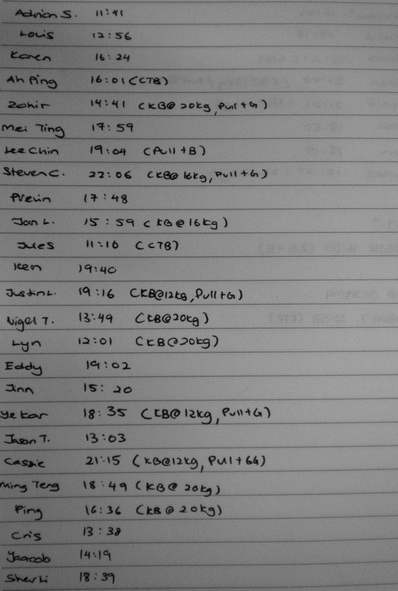 Adrian S. 11:41
Louis 12:56
Karen 16:24
Ah Ping 16:01 (CTB)
Zahir 14:41 (KB@ 20kg, Pull+G)
Mei Ting 17:59
Lee Chin 19:04 (Pull+B)
Steven C. 22:06 (KB@ 16kg, Pull+G)
Previn 17:48
Jon L. 15:59 (KB@16kg)
Jules 11:10 (CTB)
Ken 19:40
Justin L. 19:16 (KB@12kg, Pull+G)
Nigel T. 13:49 (KB@20kg)
Lyn 12:01 (KB@20kg)
Eddy 19:02
Jinn 15:20
Ye Kar 18:35 (KB@ 12kg, Pull+G)
Jason T. 13:03
Cassie 21:15 (KB@12kg, Pull+GG)
Ming Teng 18:49 (KB@ 20kg)
Ping 16:36 (KB@ 20kg)
Cris 13:38
Yaacob 14:19
Sherli 18:39